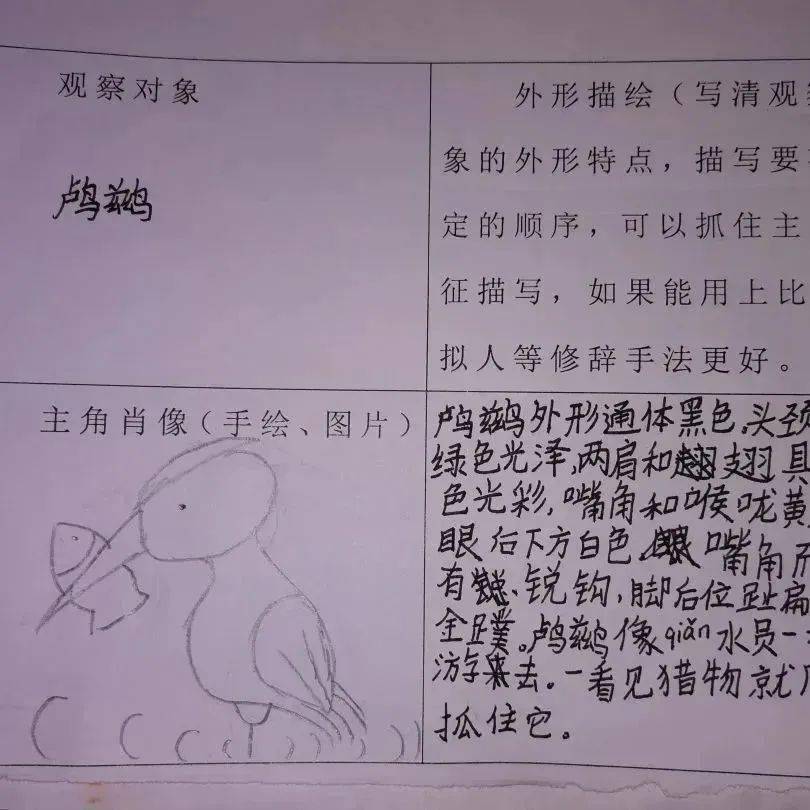 观察对象
鸬鹚
外形描绘（写清观
象的外形特点，描写要
定的顺序，可以抓住主
征描写，如果能用上比
拟人等修辞手法更好。
主角肖像（手绘、图片）
鸬鹚外形通体黑色，头颈
绿色光泽，两肩和翅具
色光彩，嘴角和喉咙黄
眼后下方白色，嘴角
有锐钩，脚后位趾扁
全蹼。鸬鹚像qiǎn水员一
游来去。一看见猎物就
抓住它。